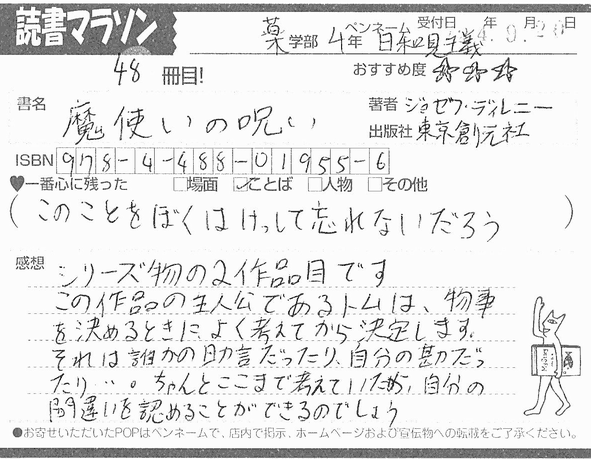 読書マラソン
薬学部 4年 ペンネーム 日和見主義 受付日 年 月 日
48冊目! おすすめ度 ☆☆☆
書名 魔使いの呪い
著者 ジョゼフ・ディレニー
出版社 東京創元社
ISBN 978-4-488-01955-6
♥一番心に残った □場面 ☑ことば □人物 □その他
(このことをぼくはけっして忘れないだろう)
感想 シリーズ物の2作品目です
この作品の主人公であるトムは、物事
を決めるときに、よく考えてから決定します。
それは誰かの助言だったり、自分の勘だっ
たり…。ちゃんとここまで考えていいため、自分の
間違いを認めることができるのでしょう
●お寄せいただいたPOPはペンネームで、店内で掲示、ホームページおよび宣伝物への転載をご了承ください。